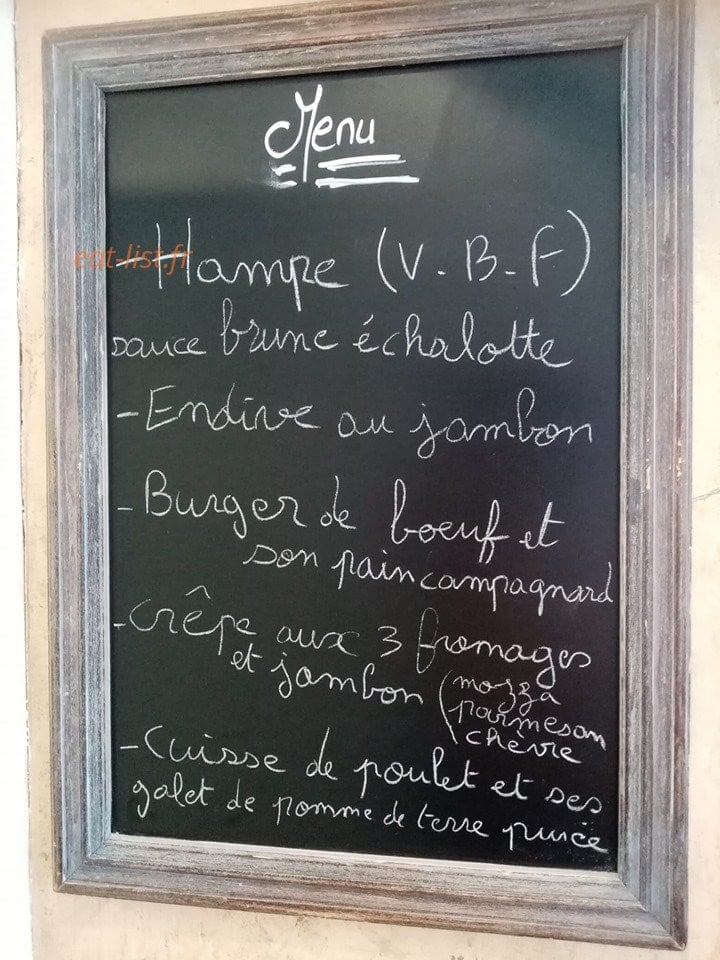 Menu
- Hampe (V.B.F)
eat-list.fr
sauce brune échalotte
- Endive au jambon
- Burger de boeuf et
son pain campagnard
- Crêpe aux 3 fromages
et jambon (mozza
parmesan
chèvre
- Cuisse de poulet et ses
galet de pomme de terre purée